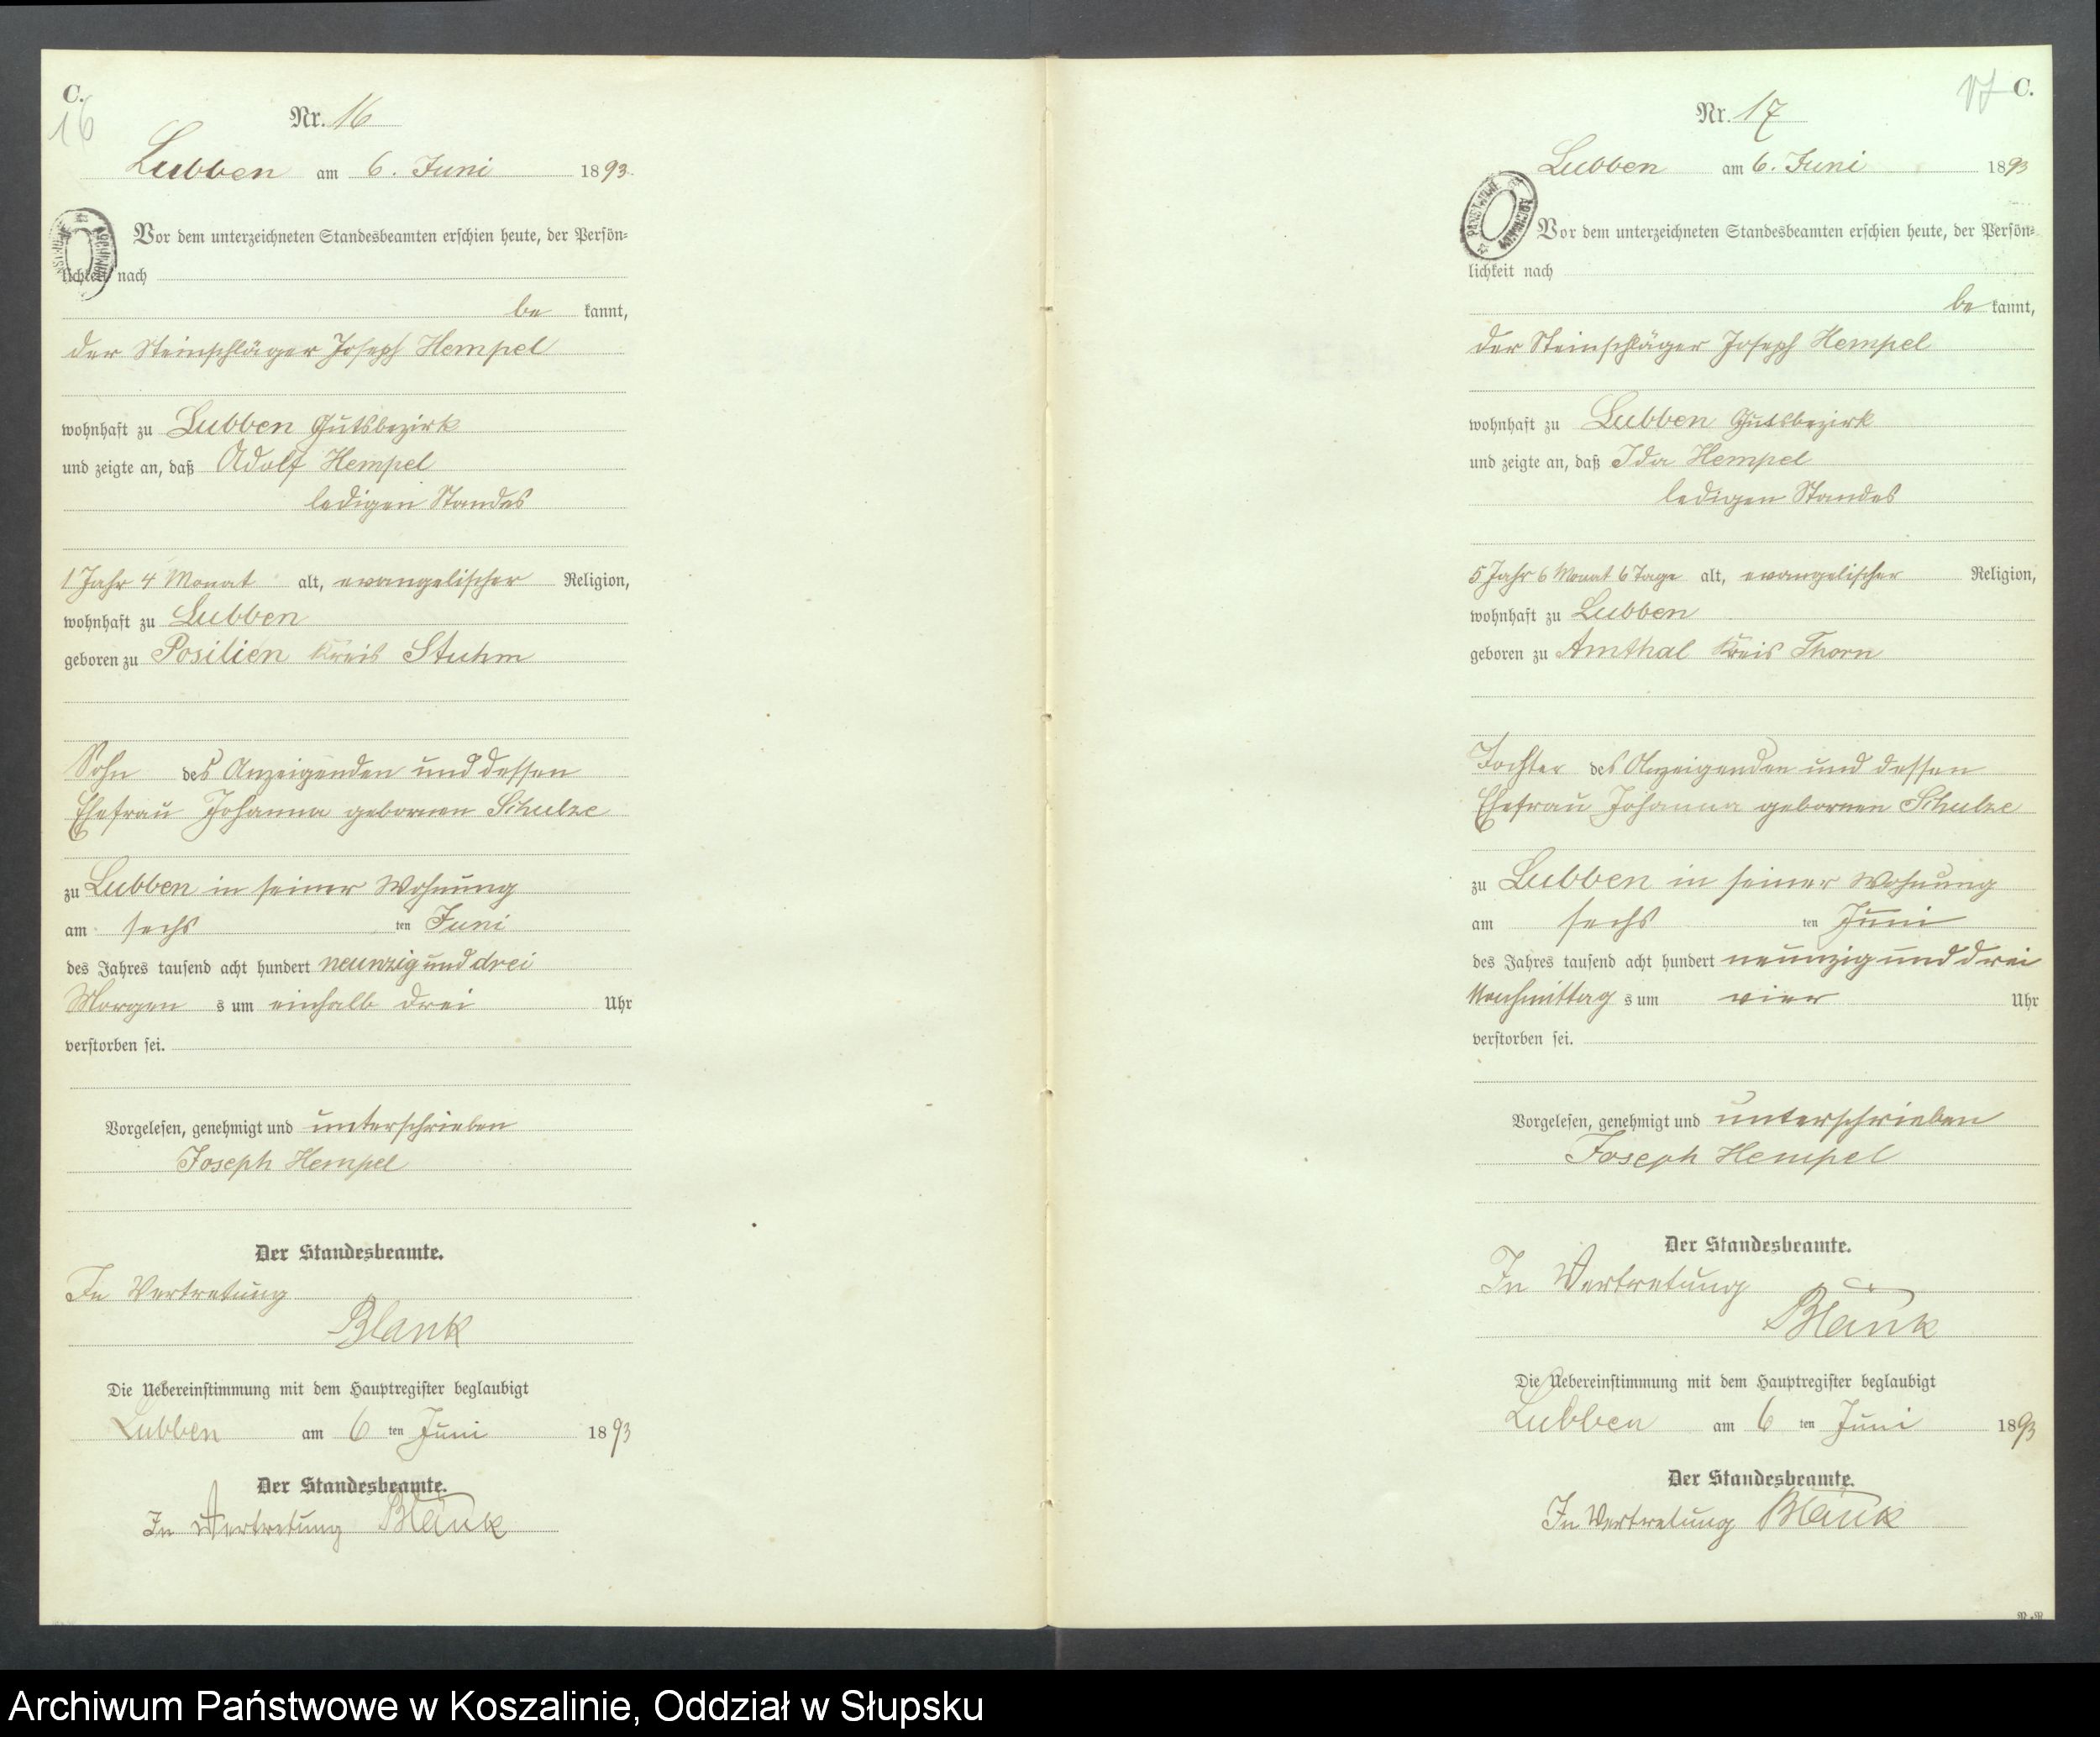 C.
16
Nr. 16
Lubben am 6. Juni 1893.
Vor dem unterzeichneten Standesbeamten erschien heute, der Persön-
lichkeit nach
be kannt,
der Steinschläger Joseph Hempel
wohnhaft zu Lubben Gutsbezirk
und zeigte an, daß Adolf Hempel
ledigen Standes
1 Jahr 4 Monat alt, evangelischer Religion,
wohnhaft zu Lubben
geboren zu Posilien Kreis Stuhm
Sohn des Anzeigenden und dessen
Ehefrau Johanna gebornen Schulze
zu Lubben in seiner Wohnung
am sechs ten Juni
des Jahres tausend acht hundert neunzig und drei
Morgen s um einhalb drei Uhr
verstorben sei.
Vorgelesen, genehmigt und unterschrieben
Joseph Hempel
Der Standesbeamte.
In Vertretung
Blank
Die Uebereinstimmung mit dem Hauptregister beglaubigt
Lubben am 6 ten Juni 1893
Der Standesbeamte.
In Vertretung Blank
17 C.
Nr. 17
Lubben am 6. Juni 1893
Vor dem unterzeichneten Standesbeamten erschien heute, der Persön-
lichkeit nach
be kannt,
der Steinschläger Joseph Hempel
wohnhaft zu Lubben Gutsbezirk
und zeigte an, daß Ida Hempel
ledigen Standes
5 Jahr 6 Monat 6 Tage alt, evangelischer Religion,
wohnhaft zu Lubben
geboren zu Amthal Kreis Thorn
Tochter des Anzeigenden und dessen
Ehefrau Johanna gebornen Schulze
zu Lubben in seiner Wohnung
am sechs ten Juni
des Jahres tausend acht hundert neunzig und drei
Nachmittag s um vier Uhr
verstorben sei.
Vorgelesen, genehmigt und unterschrieben
Joseph Hempel
Der Standesbeamte.
In Vertretung
Blank
Die Uebereinstimmung mit dem Hauptregister beglaubigt
Lubben am 6 ten Juni 1893
Der Standesbeamte.
In Vertretung Blank
Archiwum Państwowe w Koszalinie, Oddział w Słupsku